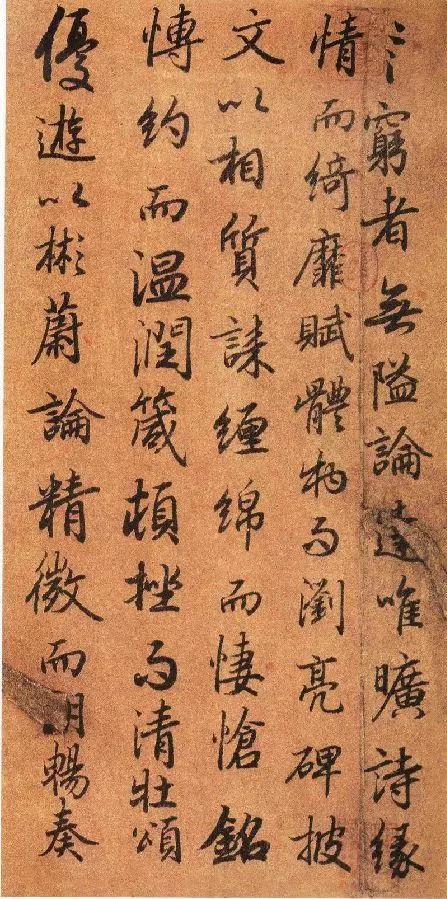 言窮者無隘論達唯曠詩緣
情而綺靡賦體物而瀏亮碑披
文以相質誄纏綿而悽愴銘
博約而温潤箴頓挫而清壯頌
優遊以彬蔚論精微而朗暢奏